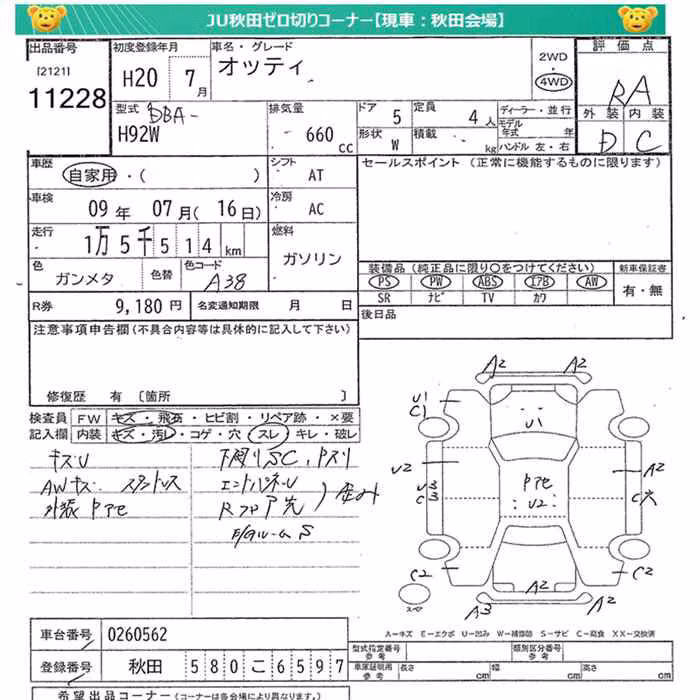 JU秋田ゼロ切りコーナー【現車：秋田会場】
出品番号
[2121]
11228
初度登録年月
H20 7月
車名・グレード
オッティ
2WD
4WD
評価点
RA
外装 内装
D C
型式 DBA-
H92W
排気量
660 cc
ドア 5
形状 W
定員 4人
積載 kg
ディーラー・並行
モデル年式 年
ハンドル 左・右
車歴
自家用・( )
シフト
AT
セールスポイント (正常に機能するものに限ります)
車検
09年 07月(16日)
冷房
AC
走行
1万5千514km
燃料
ガソリン
色
ガンメタ
色替
色コード
A38
装備品 (純正品に限り○をつけてください)
新車保証書
PS PW ABS エアB AW
SR ナビ TV カワ
有・無
R券 9,180円
名変通知期限 月 日
後日品
注意事項申告欄(不具合内容等は具体的に記入して下さい)
修復歴 有 [箇所 ]
検査員
記入欄
FW キズ・飛石・ヒビ割・リペア跡・×要
内装 キズ・汚レ・コゲ・穴・スレ・キレ・破レ
キズU
下廻りSC、
AWキズ
外装
A2 A2
U1
C1
U1
U2
U3
C3
U2
A2
C2 C2
A2
A3 A2
A－キズ E－エクボ U－凹み W－補修跡 S－サビ C－腐食 XX－交換済
車台番号 0260562
登録番号 秋田 580 こ 6597
型式指定番号
参考
類別区分番号
参考
車庫証明用
参考
長さ cm 幅 cm 高さ cm
希望出品コーナー (コーナーは各会場により異なります。)